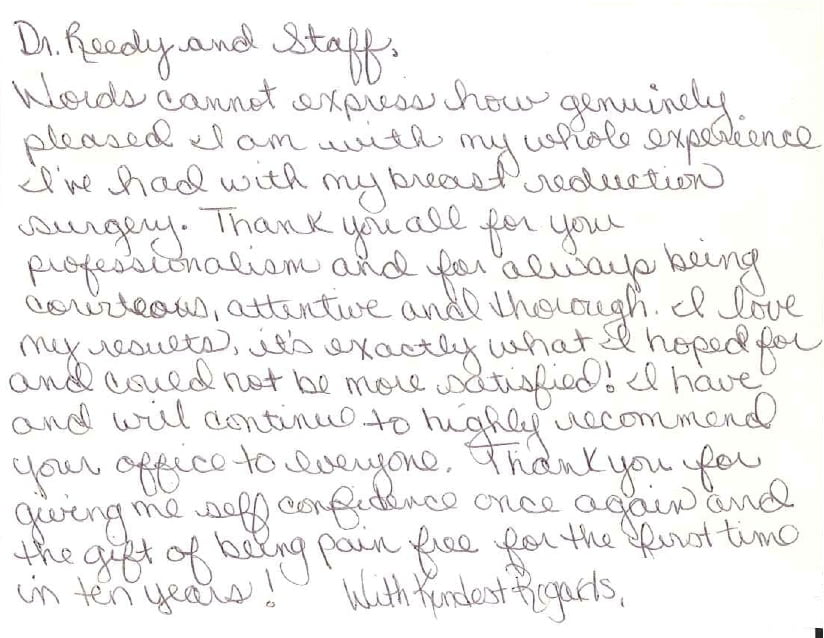 Dr. Reedy and Staff,
Words cannot express how genuinely
pleased I am with my whole experience
I've had with my breast reduction
surgery. Thank you all for your
professionalism and for always being
courteous, attentive and thorough. I love
my results, it's exactly what I hoped for
and could not be more satisfied! I have
and will continue to highly recommend
your office to everyone. Thank you for
giving me self confidence once again and
the gift of being pain free for the first time
in ten years! With Kindest Regards,